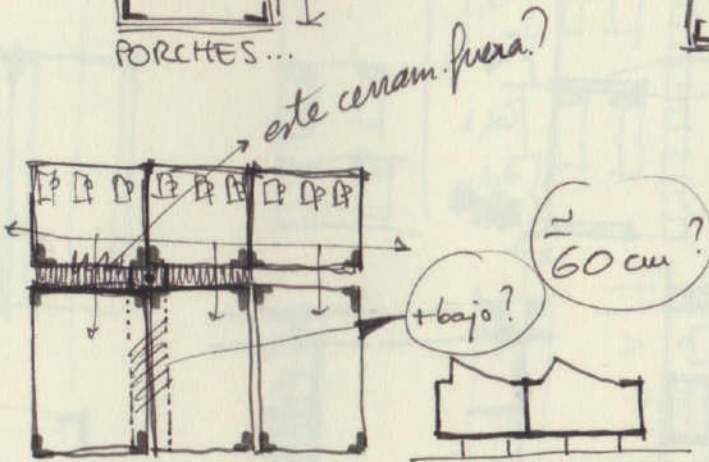 PORCHES...
este cerram. fuera?
≃
60 cm?
+ bajo?